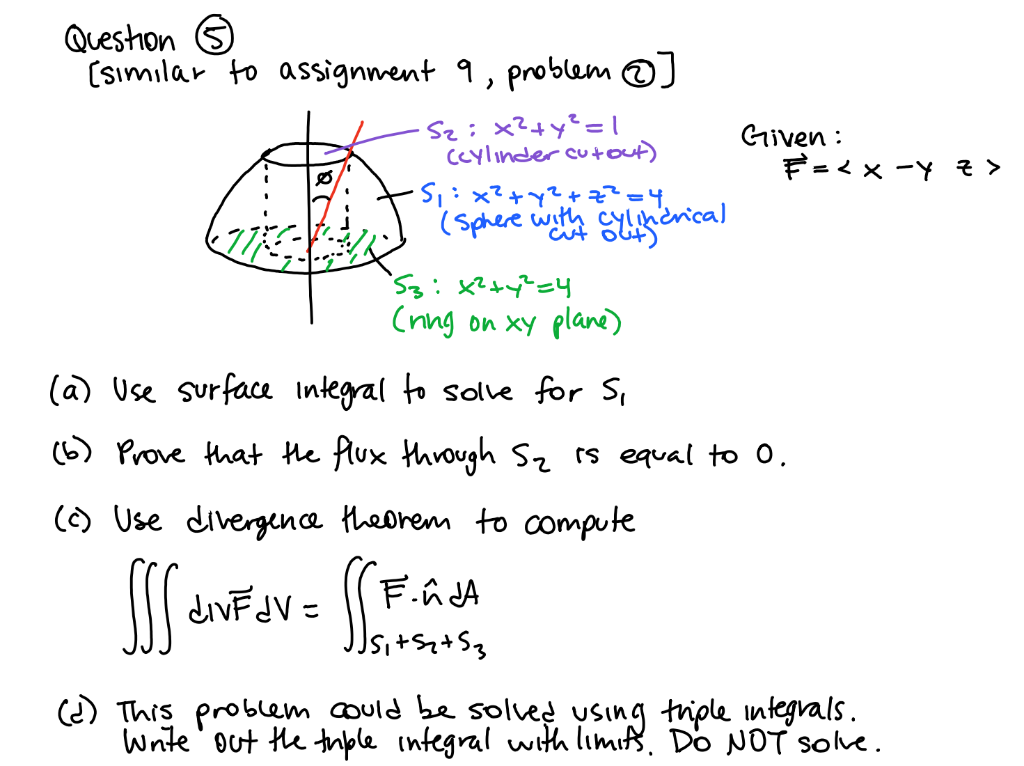 Question ⑤
[similar to assignment 9, problem ②]
S₂ : x²+y²=1
(cylinder cutout)
Given :
F⃗ = < x -y z >
ø
S₁ : x²+y²+z²=4
(sphere with cylindrical
cut out)
S₃ : x²+y²=4
(ring on xy plane)
(a) Use surface integral to solve for S₁
(b) Prove that the flux through S₂ is equal to 0.
(c) Use divergence theorem to compute
∭ divF⃗ dV = ∬ F⃗·n̂ dA
S₁+S₂+S₃
(d) This problem could be solved using triple integrals.
Write out the triple integral with limits. Do NOT solve.